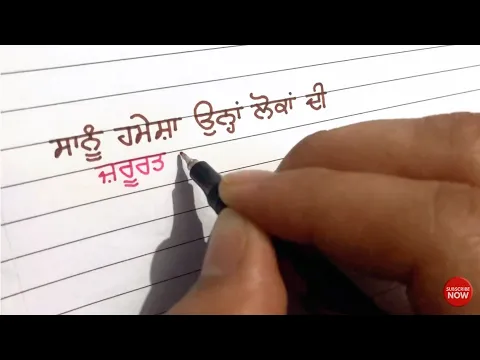 ਸਾਨੂੰ ਹਮੇਸ਼ਾ ਉਨ੍ਹਾਂ ਲੋਕਾਂ ਦੀ
ਜ਼ਰੂਰਤ
SUBSCRIBE
NOW